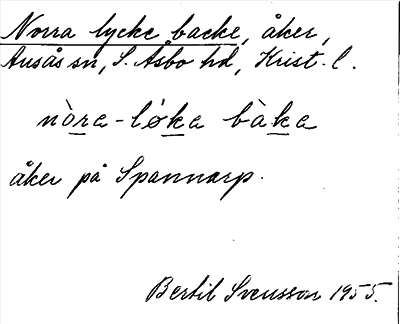 Norra lycke backe, åker,
Ausås sn, S. Åsbo hd, Krist. l.
nòra-løka bàka
åker på Spannarp.
Bertil Svensson 1955.